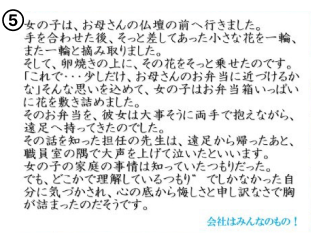 ⑤
女の子は、お母さんの仏壇の前へ行きました。
手を合わせた後、そっと差してあった小さな花を一輪、
また一輪と摘み取りました。
そして、卵焼きの上に、その花をそっと乗せたのです。
「これで・・・少しだけ、お母さんのお弁当に近づけるか
な」そんな思いを込めて、女の子はお弁当箱いっぱい
に花を敷き詰めました。
そのお弁当を、彼女は大事そうに両手で抱えながら、
遠足へ持ってきたのでした。
その話を知った担任の先生は、遠足から帰ったあと、
職員室の隅で大声を上げて泣いたといいます。
女の子の家庭の事情は知っていたつもりだった。
でも、どこかで理解しているつもり”でしかなかった自
分に気づかされ、心の底から悔しさと申し訳なさで胸
が詰まったのだそうです。
会社はみんなのもの！